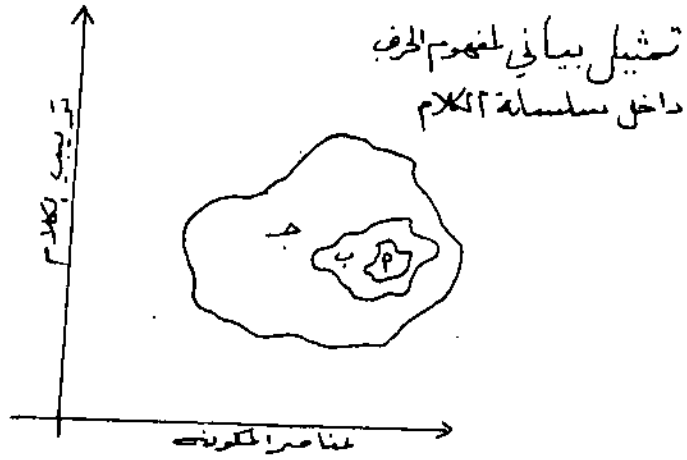 تمثيل بياني لمفهوم الحرف
داخل سلسلة الكلام
تركيب الكلام
جـ
ب
م
عناصر المكونه